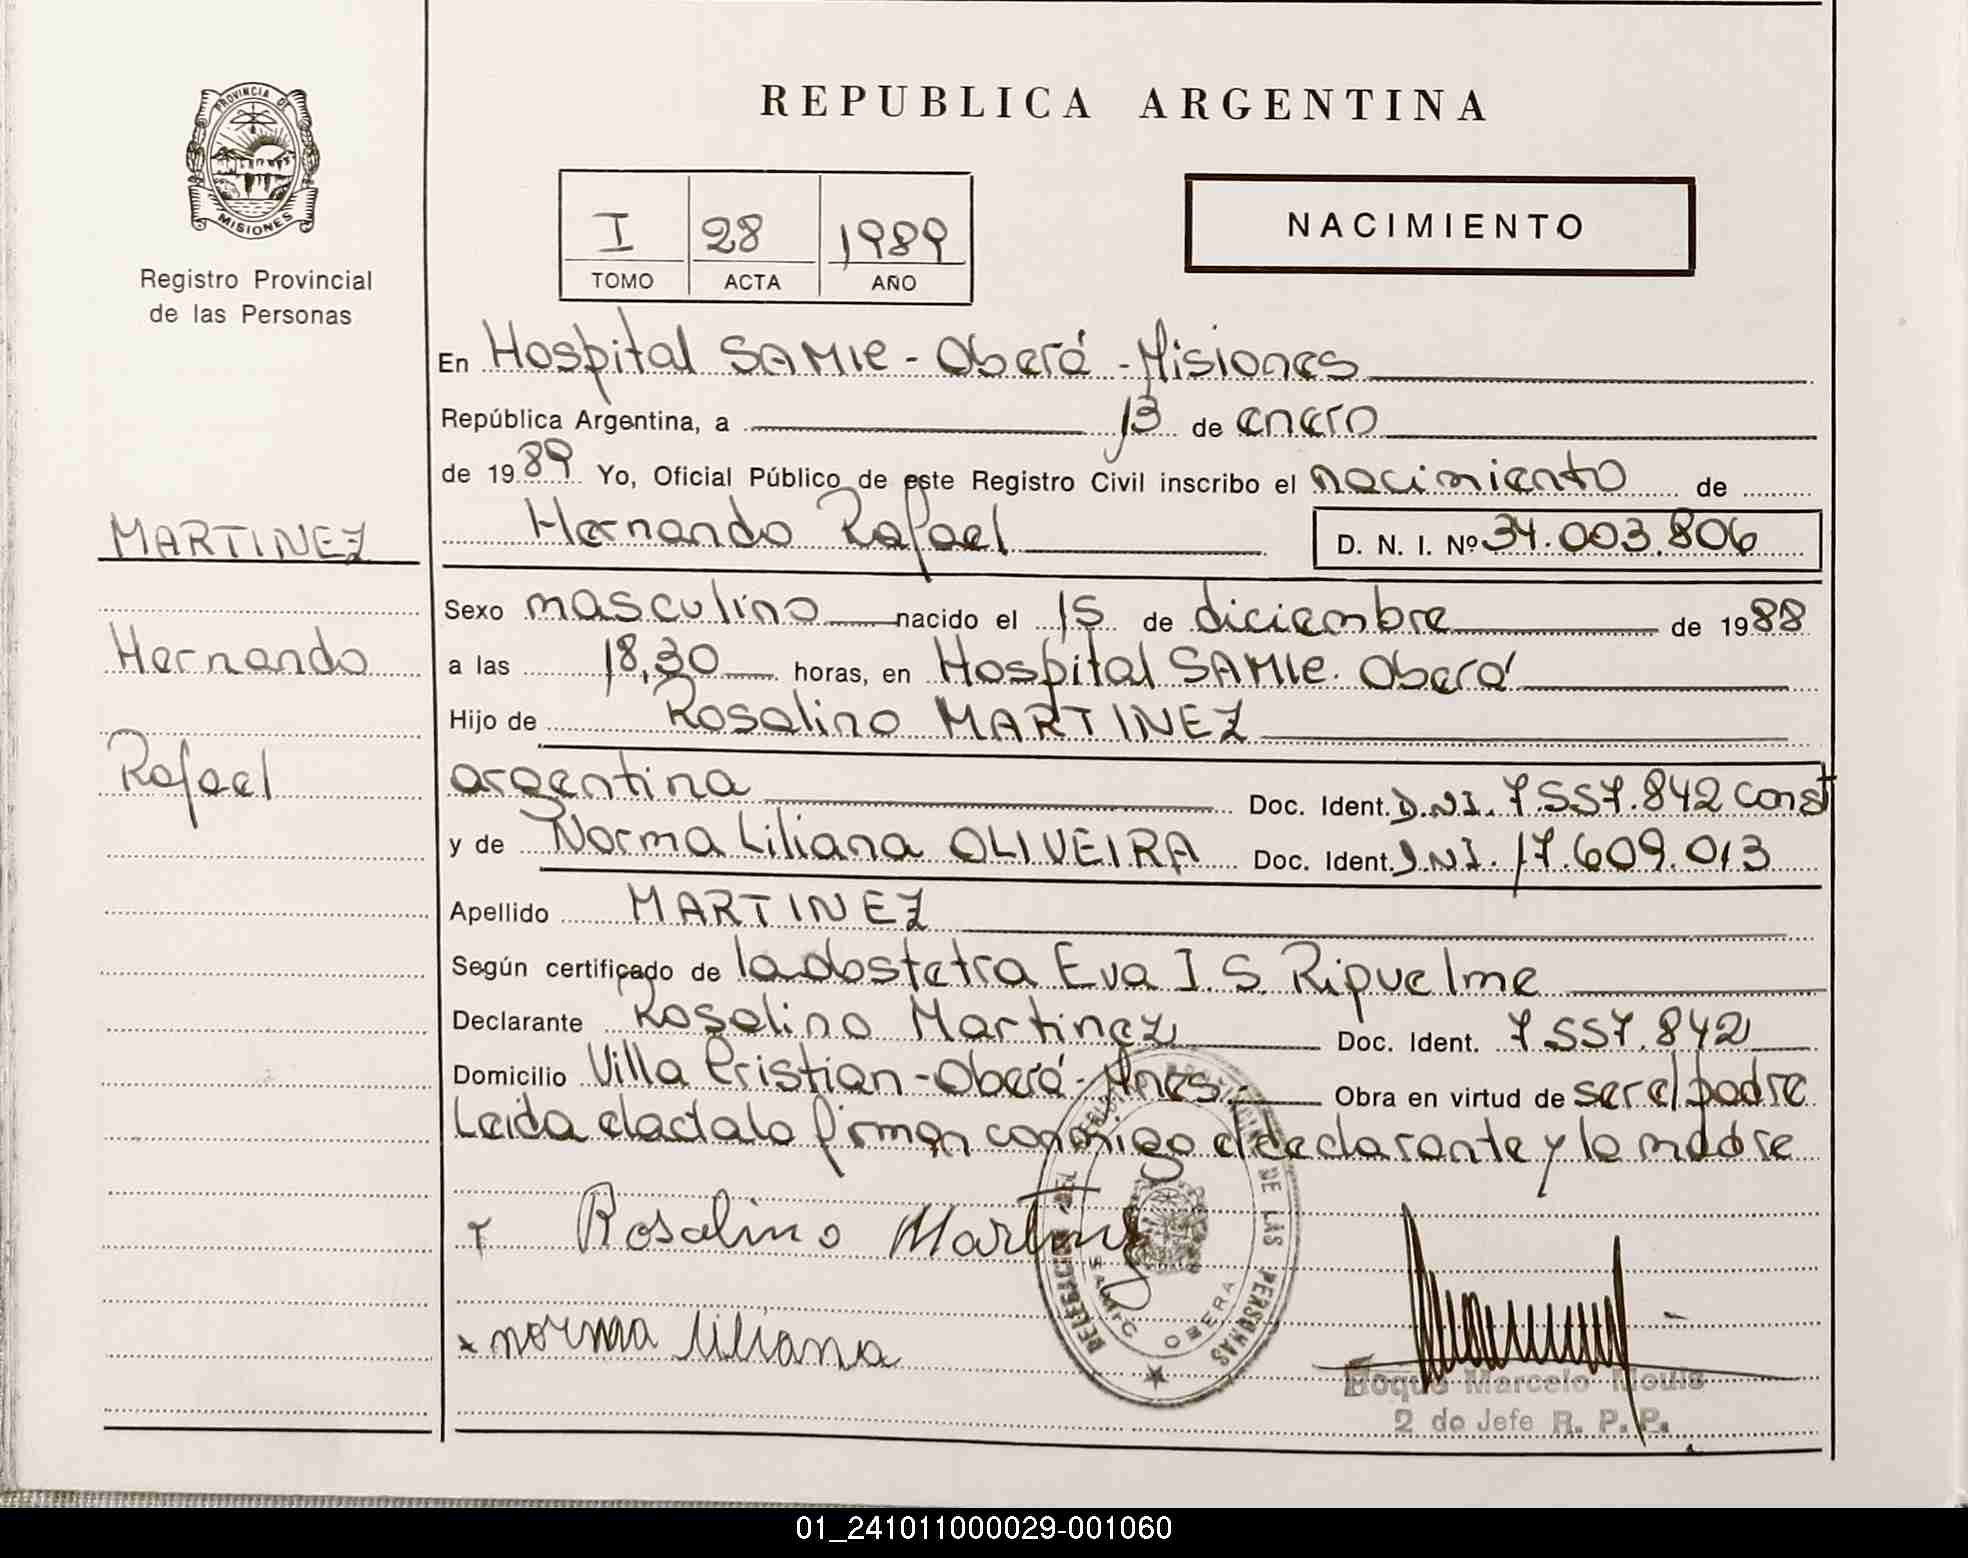 REPUBLICA ARGENTINA
PROVINCIA DE
MISIONES
Registro Provincial
de las Personas
I 28 1989
TOMO ACTA AÑO
NACIMIENTO
En Hospital SAMIC - Oberá - Misiones
República Argentina, a 13 de enero
de 1989 Yo, Oficial Público de este Registro Civil inscribo el nacimiento de
Hernando Rafael D. N. I. Nº 34.003.806
MARTINEZ
Hernando
Rafael
Sexo masculino nacido el 15 de diciembre de 1988
a las 18,30 horas, en Hospital SAMIC. Oberá
Hijo de Rosalino MARTINEZ
argentina Doc. Ident. D.N.I. 7.557.842 const
y de Norma Liliana OLIVEIRA Doc. Ident. D.N.I. 17.609.013
Apellido MARTINEZ
Según certificado de la obstetra Eva I. S. Riquelme
Declarante Rosalino Martinez Doc. Ident. 7.557.842
Domicilio Villa Cristian - Oberá - Mnes. Obra en virtud de ser el padre
Leida el acta la firman conmigo el declarante y la madre
Rosalino Martinez
x norma liliana
DELEGACION DEL REGISTRO PROVINCIAL DE LAS PERSONAS
SAMIC OBERA
Roque Marcelo
2 do Jefe R. P. P.
01_241011000029-001060